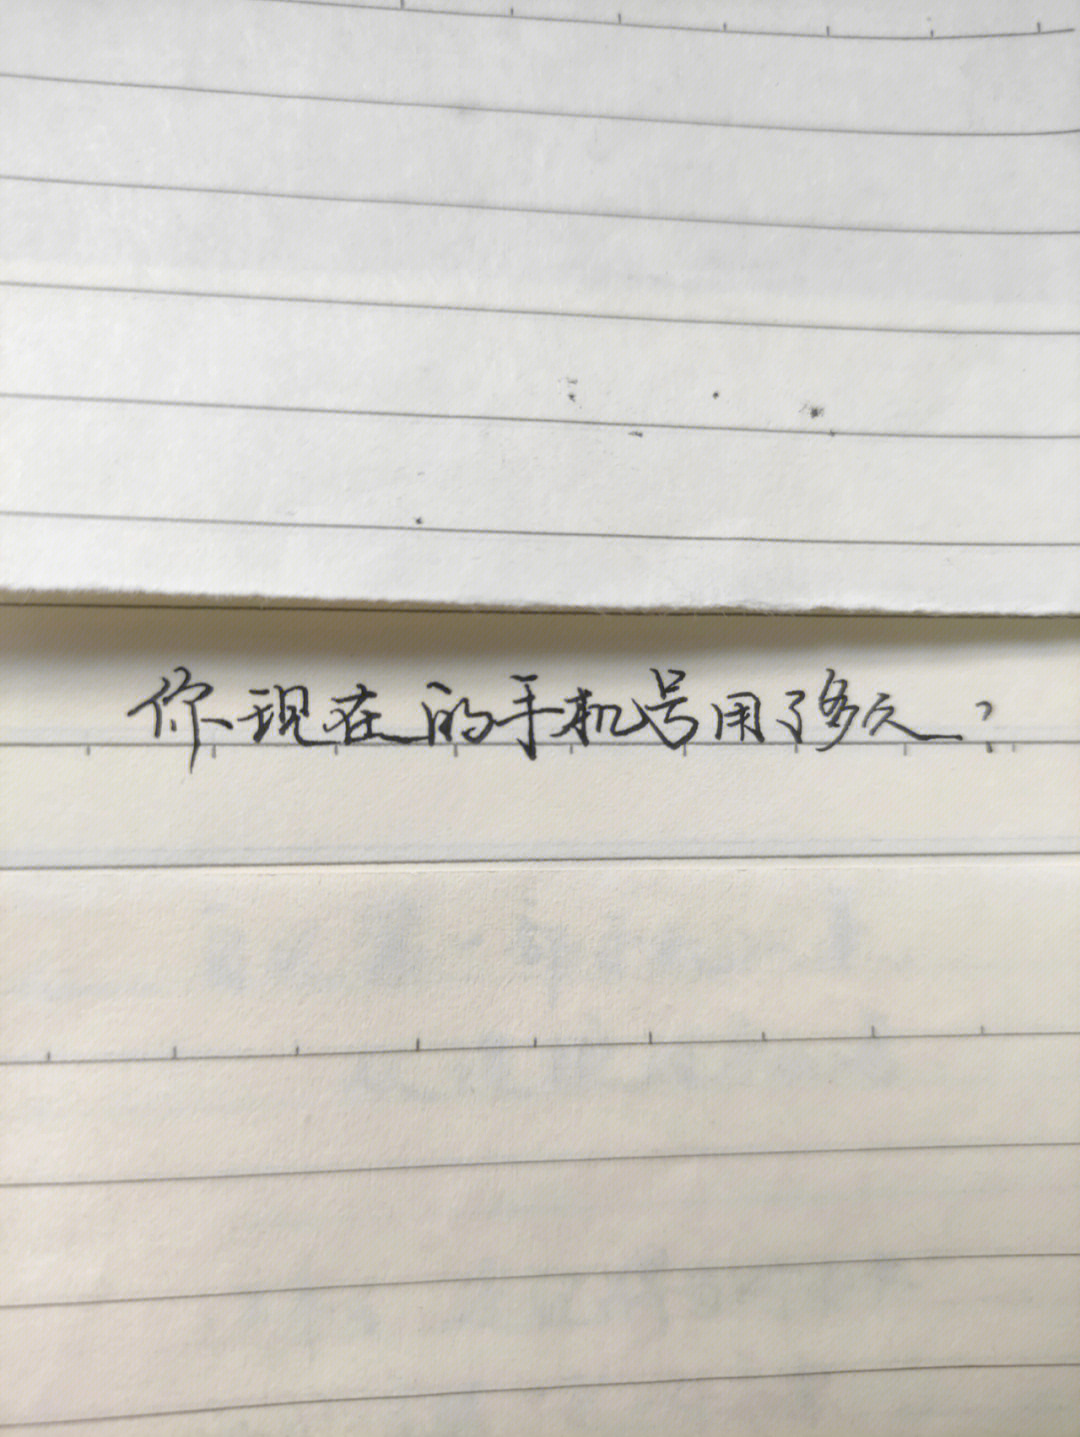 你现在的手机号用了多久?